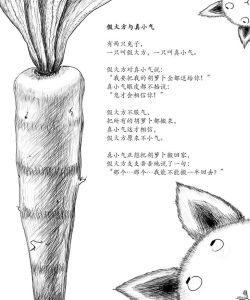 假大方与真小气
有两只兔子，
一只叫假大方，一只叫真小气。
假大方对真小气说：
“我要把我的胡萝卜全都送给你！”
真小气眼皮都不抬说：
“鬼才会相信你！”
假大方不服气，
把所有的胡萝卜都搬来，
真小气这才相信，
假大方原来不小气。
真小气正想把胡萝卜搬回家，
假大方支支吾吾地说了一句：
“那个…那个…我能不能搬一半回去？”